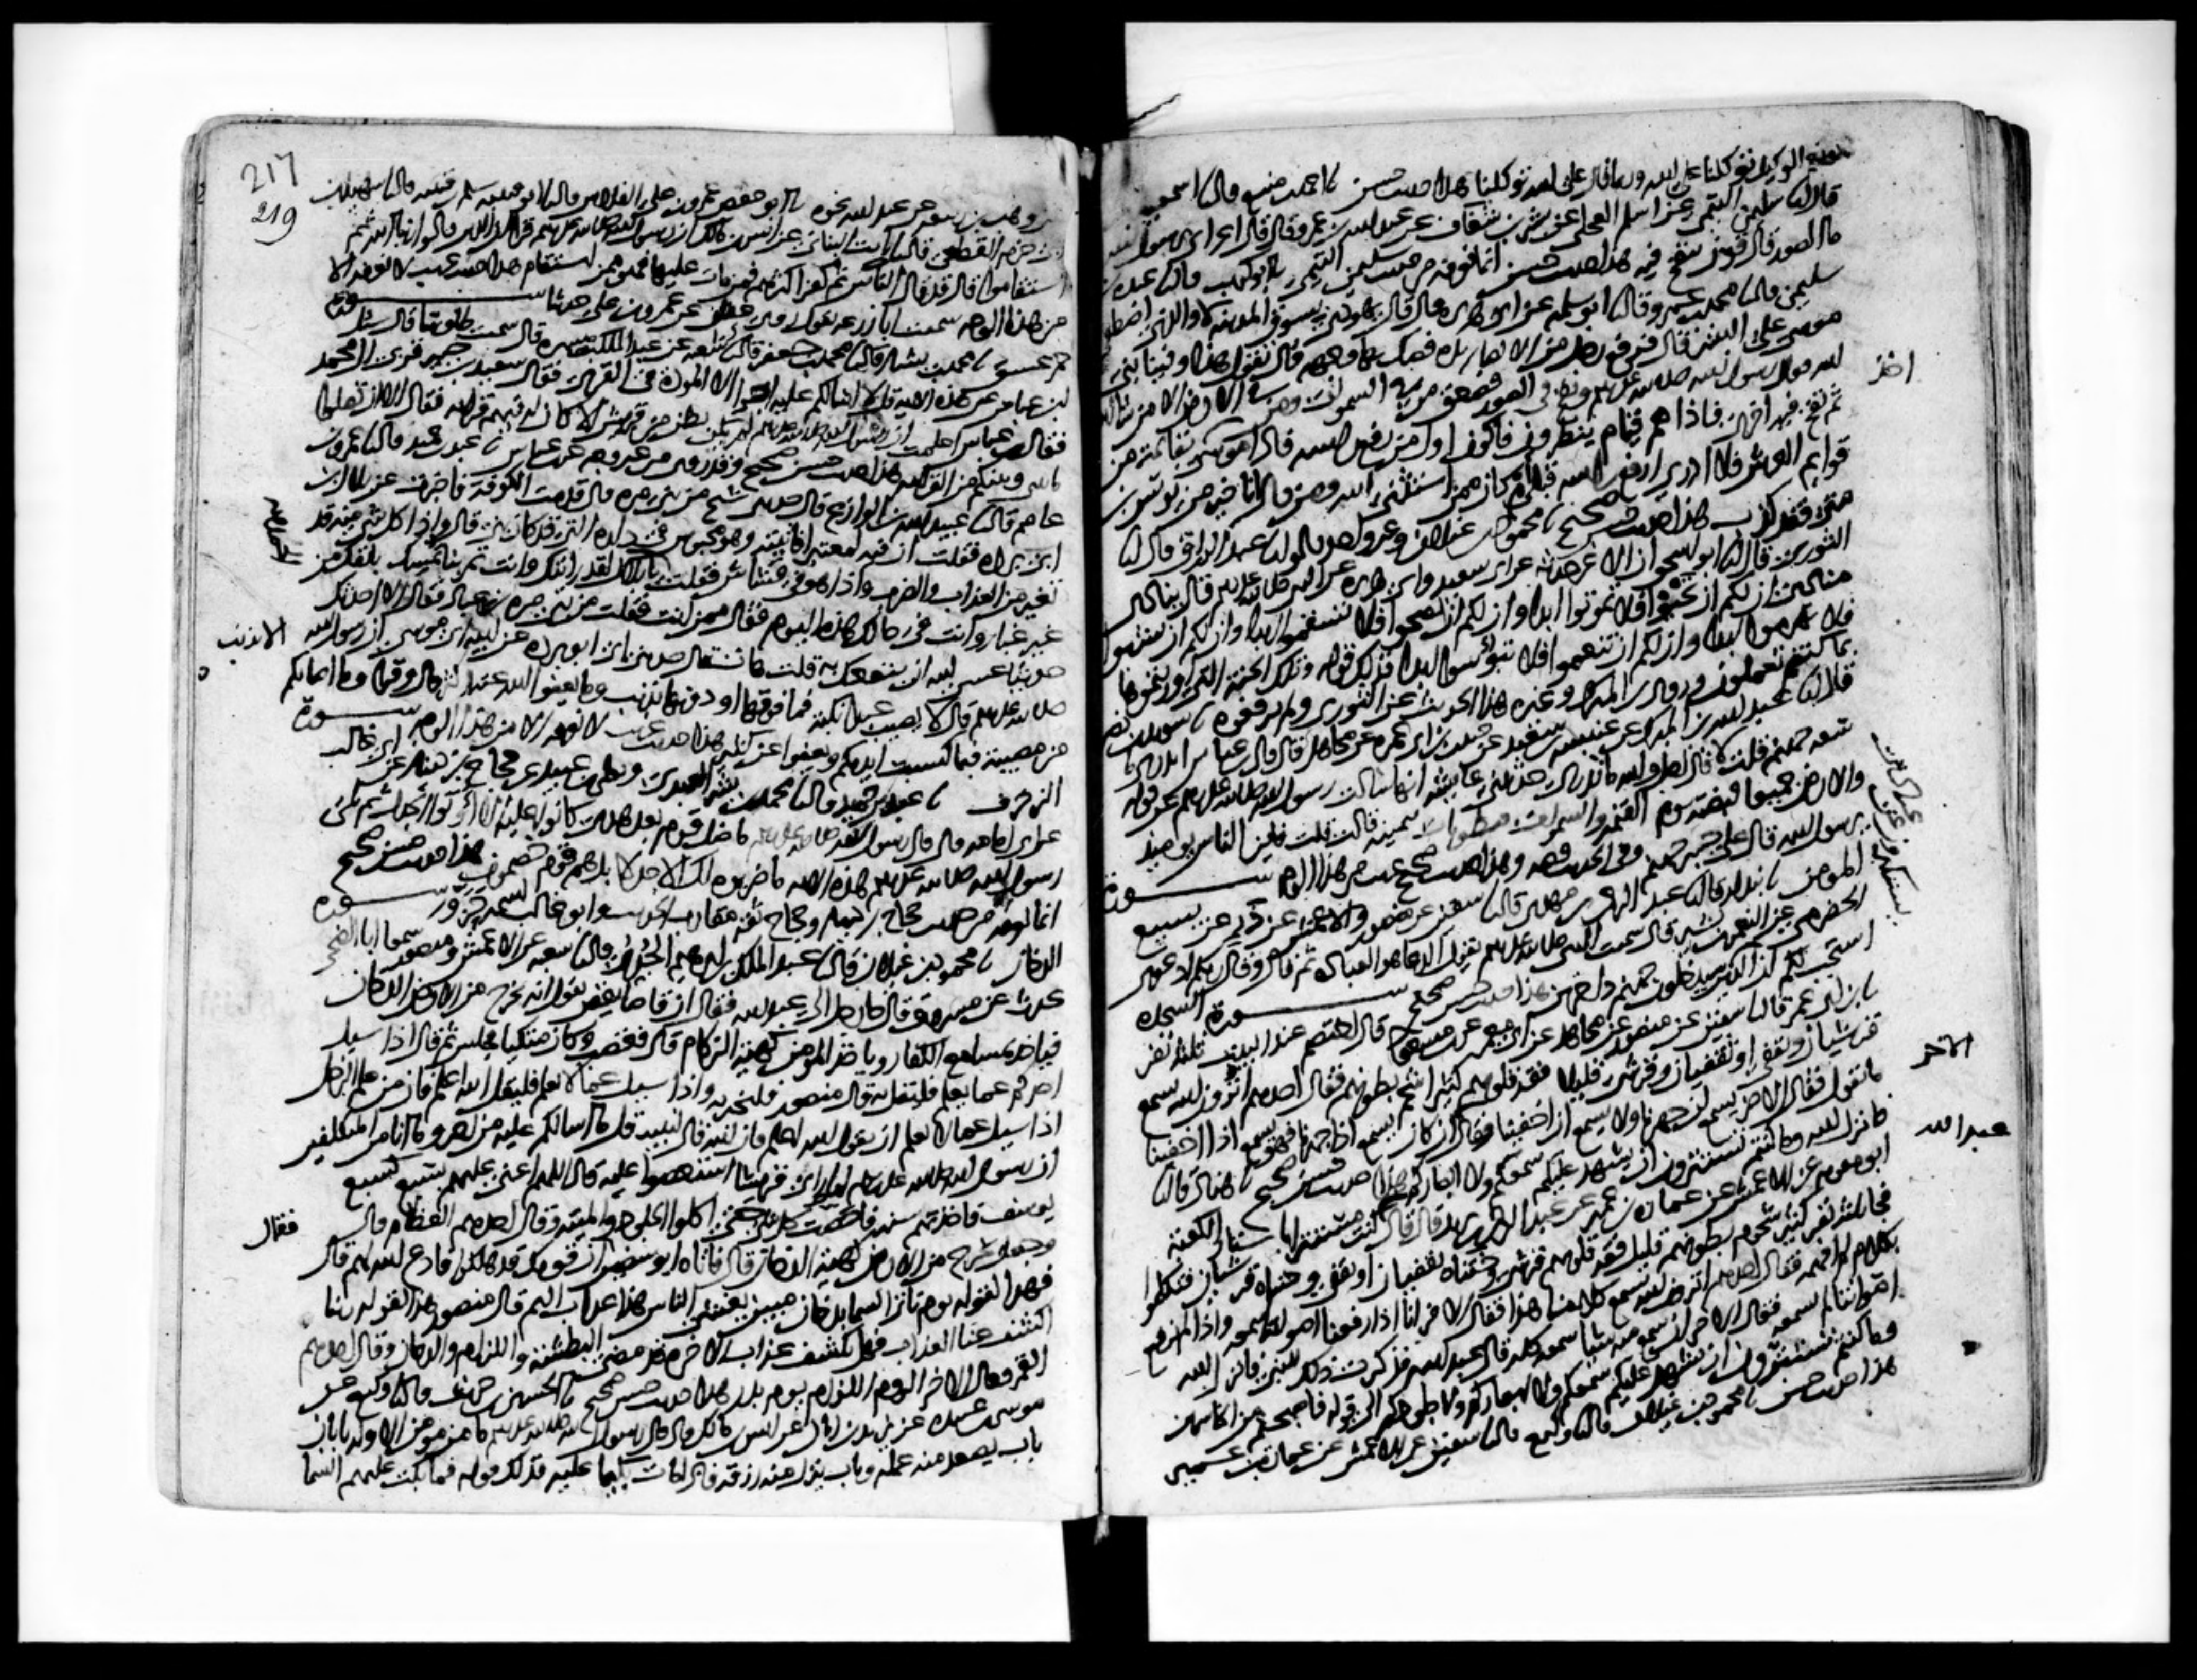 ونعم الوكيل توكلنا على الله وربما قال على الله توكلنا هذا حديث حسن احمد بن منيع قال اسمعيل
قال سليمن التيمي عن اسلم العجلي عن بشر بن شغاف عن عبد الله بن عمرو قال قال اعرابي يا رسول الله
ما الصور قال قرن ينفخ فيه هذا حديث حسن انما نعرفه من حديث سليمن التيمي ابو كريب قال عبدة بن
سليمن قال محمد بن عمرو قال ابو سلمة عن ابي هريرة قال قال يهودي بسوق المدينة لا والذي اصطفى
موسى على البشر قال فرفع رجل من الانصار يده فصك بها وجهه قال تقول هذا وفينا نبي
الله فقال رسول الله صلى الله عليه وسلم ونفخ في الصور فصعق من في السموات ومن في الارض الا من شا الله
ثم نفخ فيه اخرى فاذا هم قيام ينظرون فاكون اول من رفع راسه فاذا موسى اخذ بقائمة من
قوايم العرش فلا ادري ارفع راسه قبلي ام كان ممن استثنى الله ومن قال انا خير من يونس بن
متى فقد كذب هذا حديث صحيح محمود بن غيلان وغير واحد قالوا عبد الرزاق قال
الثوري قال ابو اسحق ان الاغر حدثه عن ابي سعيد وابي هريرة عن النبي صلى الله عليه وسلم قال ينادي
مناد ان لكم ان تحيوا فلا تموتوا ابدا وان لكم ان تصحوا فلا تسقموا ابدا وان لكم ان تشبوا
فلا تهرموا ابدا وان لكم ان تنعموا فلا تبؤسوا ابدا فذلك قوله وتلك الجنة التي اورثتموها
بما كنتم تعملون وروى ابن المبرك وغيره هذا الحديث عن الثوري ولم يرفعوه سويد بن نصر
قال عبد الله بن المبرك عن عنبسة بن سعيد عن حبيب بن ابي عمرة عن مجاهد قال قال ابن عباس اتدري ما
سعة جهنم قلت لا قال اجل والله ما تدري حدثتني عايشة انها سالت رسول الله صلى الله عليه وسلم عن قوله
والارض جميعا قبضته يوم القيمة والسموات مطويات بيمينه قالت قلت فاين الناس يوميذ
يرسول الله قال على جسر جهنم وفي الحديث قصة وهذا حديث صحيح غريب من هذا الوجه سورة
المومن بندار قال عبد الرحمن بن مهدي قال سفين عن منصور والاعمش عن ذر عن يسيع
الحضرمي عن النعمن بن بشير قال سمعت النبي صلى الله عليه وسلم يقول الدعا هو العبادة ثم قرا وقال ربكم ادعوني
استجب لكم ان الذين يستكبرون عن عبادتي سيدخلون جهنم داخرين هذا حديث حسن صحيح سورة السجدة
ابن ابي عمر قال سفين عن منصور عن مجاهد عن ابي معمر عن ابن مسعود قال اختصم عند البيت ثلثة نفر
قرشيان وثقفي او ثقفيان وقرشي قليل فقه قلوبهم كثير شحم بطونهم فقال احدهم اترون الله يسمع
ما نقول فقال الاخر يسمع ان جهرنا ولا يسمع ان اخفينا وقال الاخر ان كان يسمع اذا جهرنا فهو يسمع اذا اخفينا
فانزل الله وما كنتم تستترون ان يشهد عليكم سمعكم ولا ابصاركم هذا حديث حسن صحيح هناد قال
ابو معوية عن الاعمش عن عمارة بن عمير عن عبد الرحمن بن يزيد قال قال عبد الله كنت مستترا باستار الكعبة
فجا ثلثة نفر كثير شحوم بطونهم قليل فقه قلوبهم قرشي وختناه ثقفيان او ثقفي وختناه قرشيان فتكلموا
بكلام لم افهمه فقال احدهم اترون الله يسمع كلامنا هذا فقال الاخر انا اذا رفعنا اصواتنا سمعه واذا لم نرفع
اصواتنا لم يسمعه فقال الاخر ان سمع منه شيا سمعه كله قال عبد الله فذكرت ذلك للنبي فانزل الله
وما كنتم تستترون ان يشهد عليكم سمعكم ولا ابصاركم ولا جلودكم الى قوله فاصبحتم من الخاسرين
هذا حديث حسن محمود بن غيلان قال وكيع قال سفين عن الاعمش عن عمارة بن عمير
اخذ
يستكبرون عن عبادتي
الاخر
عبد الله
217
219
عن وهب بن ربيعة عن عبد الله نحوه ابو حفص عمرو بن علي الفلاس قال ابو قتيبة سلم بن قتيبة قال سهيل بن
ابي حزم القطعي قال ثابت البناني عن انس بن مالك ان رسول الله صلى الله عليه وسلم قرا ان الذين قالوا ربنا الله ثم
استقاموا قال قد قال الناس ثم كفر اكثرهم فمن مات عليها فهو ممن استقام هذا حديث غريب لا نعرفه الا
من هذا الوجه سمعت ابا زرعة يقول روى عفان عن عمرو بن علي حديثا سورة
حم عسق محمد بن بشار قال محمد بن جعفر قال شعبة عن عبد الملك بن ميسرة قال سمعت طاوسا قال سئل
ابن عباس عن هذه الاية قل لا اسالكم عليه اجرا الا المودة في القربى فقال سعيد بن جبير قربى ال محمد
فقال ابن عباس اعلمت ان رسول الله صلى الله عليه وسلم لم يكن بطن من قريش الا كان له فيهم قرابة فقال الا ان تصلوا
ما بيني وبينكم من القرابة هذا حديث حسن صحيح وقد روي من غير وجه عن ابن عباس عبد بن حميد قال عمرو بن
عاصم قال عبيد الله بن الوازع قال حدثني شيخ من بني مرة قال قدمت الكوفة فاخبرت عن بلال بن
ابي بردة فقلت ان فيه لمعتبرا فاتيته وهو محبوس في داره التي قد كان بنى قال واذا كل شي منه قد
تغير من العذاب والضرب واذا هو في قشاش فقلت الحمد لله يا بلال لقد رايتك وانت تمر بنا تمسك بانفك من
غير غبار وانت في حالك هذه اليوم فقال ممن انت فقلت من بني مرة بن عباد فقال الا احدثك
حديثا عسى الله ان ينفعك به قلت هات قال حدثني ابي ابو بردة عن ابيه ابي موسى ان رسول الله
صلى الله عليه وسلم قال لا يصيب عبدا نكبة فما فوقها او دونها الا بذنب وما يعفو الله عنه اكثر قال وقرا وما اصابكم
من مصيبة فبما كسبت ايديكم ويعفوا عن كثير هذا حديث غريب لا نعرفه الا من هذا الوجه سورة
الزخرف عبد بن حميد قال محمد بن بشر العبدي ويعلى بن عبيد عن حجاج بن دينار عن ابي غالب
عن ابي امامة قال قال رسول الله صلى الله عليه وسلم ما ضل قوم بعد هدى كانوا عليه الا اوتوا الجدل ثم تلا
رسول الله صلى الله عليه وسلم هذه الاية ما ضربوه لك الا جدلا بل هم قوم خصمون هذا حديث حسن صحيح
انما نعرفه من حديث حجاج بن دينار وحجاج ثقة مقارب الحديث وابو غالب اسمه حزور سورة
الدخان محمود بن غيلان قال عبد الملك بن ابرهيم الجدي قال شعبة عن الاعمش ومنصور سمعا ابا الضحى
يحدث عن مسروق قال جا رجل الى عبد الله فقال ان قاصا يقص يقول انه يخرج من الارض الدخان
فياخذ بمسامع الكفار وياخذ المومن كهيئة الزكام قال فغضب وكان متكيا فجلس ثم قال اذا سيل
احدكم عما يعلم فليقل به قال منصور فليخبر به واذا سيل عما لا يعلم فليقل الله اعلم فان من علم الرجل
اذا سيل عما لا يعلم ان يقول الله اعلم فان الله قال لنبيه قل ما اسالكم عليه من اجر وما انا من المتكلفين
ان رسول الله صلى الله عليه وسلم لما راى قريشا استعصوا عليه قال اللهم اعني عليهم بسبع كسبع
يوسف فاخذتهم سنة فاحصت كل شي حتى اكلوا الجلود والميتة وقال احدهم العظام قال
وجعل يخرج من الارض كهيئة الدخان قال فاتاه ابو سفين ان قومك قد هلكوا فادع الله لهم قال
فهذا لقوله يوم تاتي السما بدخان مبين يغشى الناس هذا عذاب اليم قال منصور هذا لقوله ربنا
اكشف عنا العذاب فهل يكشف عذاب الاخرة قد مضى البطشة واللزام والدخان وقال احدهم
القمر وقال الاخر الروم اللزام يوم بدر هذا حديث حسن صحيح الحسين بن حريث قال وكيع عن
موسى بن عبيدة عن يزيد بن ابان عن انس بن مالك قال قال رسول الله صلى الله عليه وسلم ما من مومن الا وله بابان
باب يصعد منه عمله وباب ينزل منه رزقه فاذا مات بكيا عليه فذلك قوله فما بكت عليهم السما
الحمد لله
الا بذنب
فقال